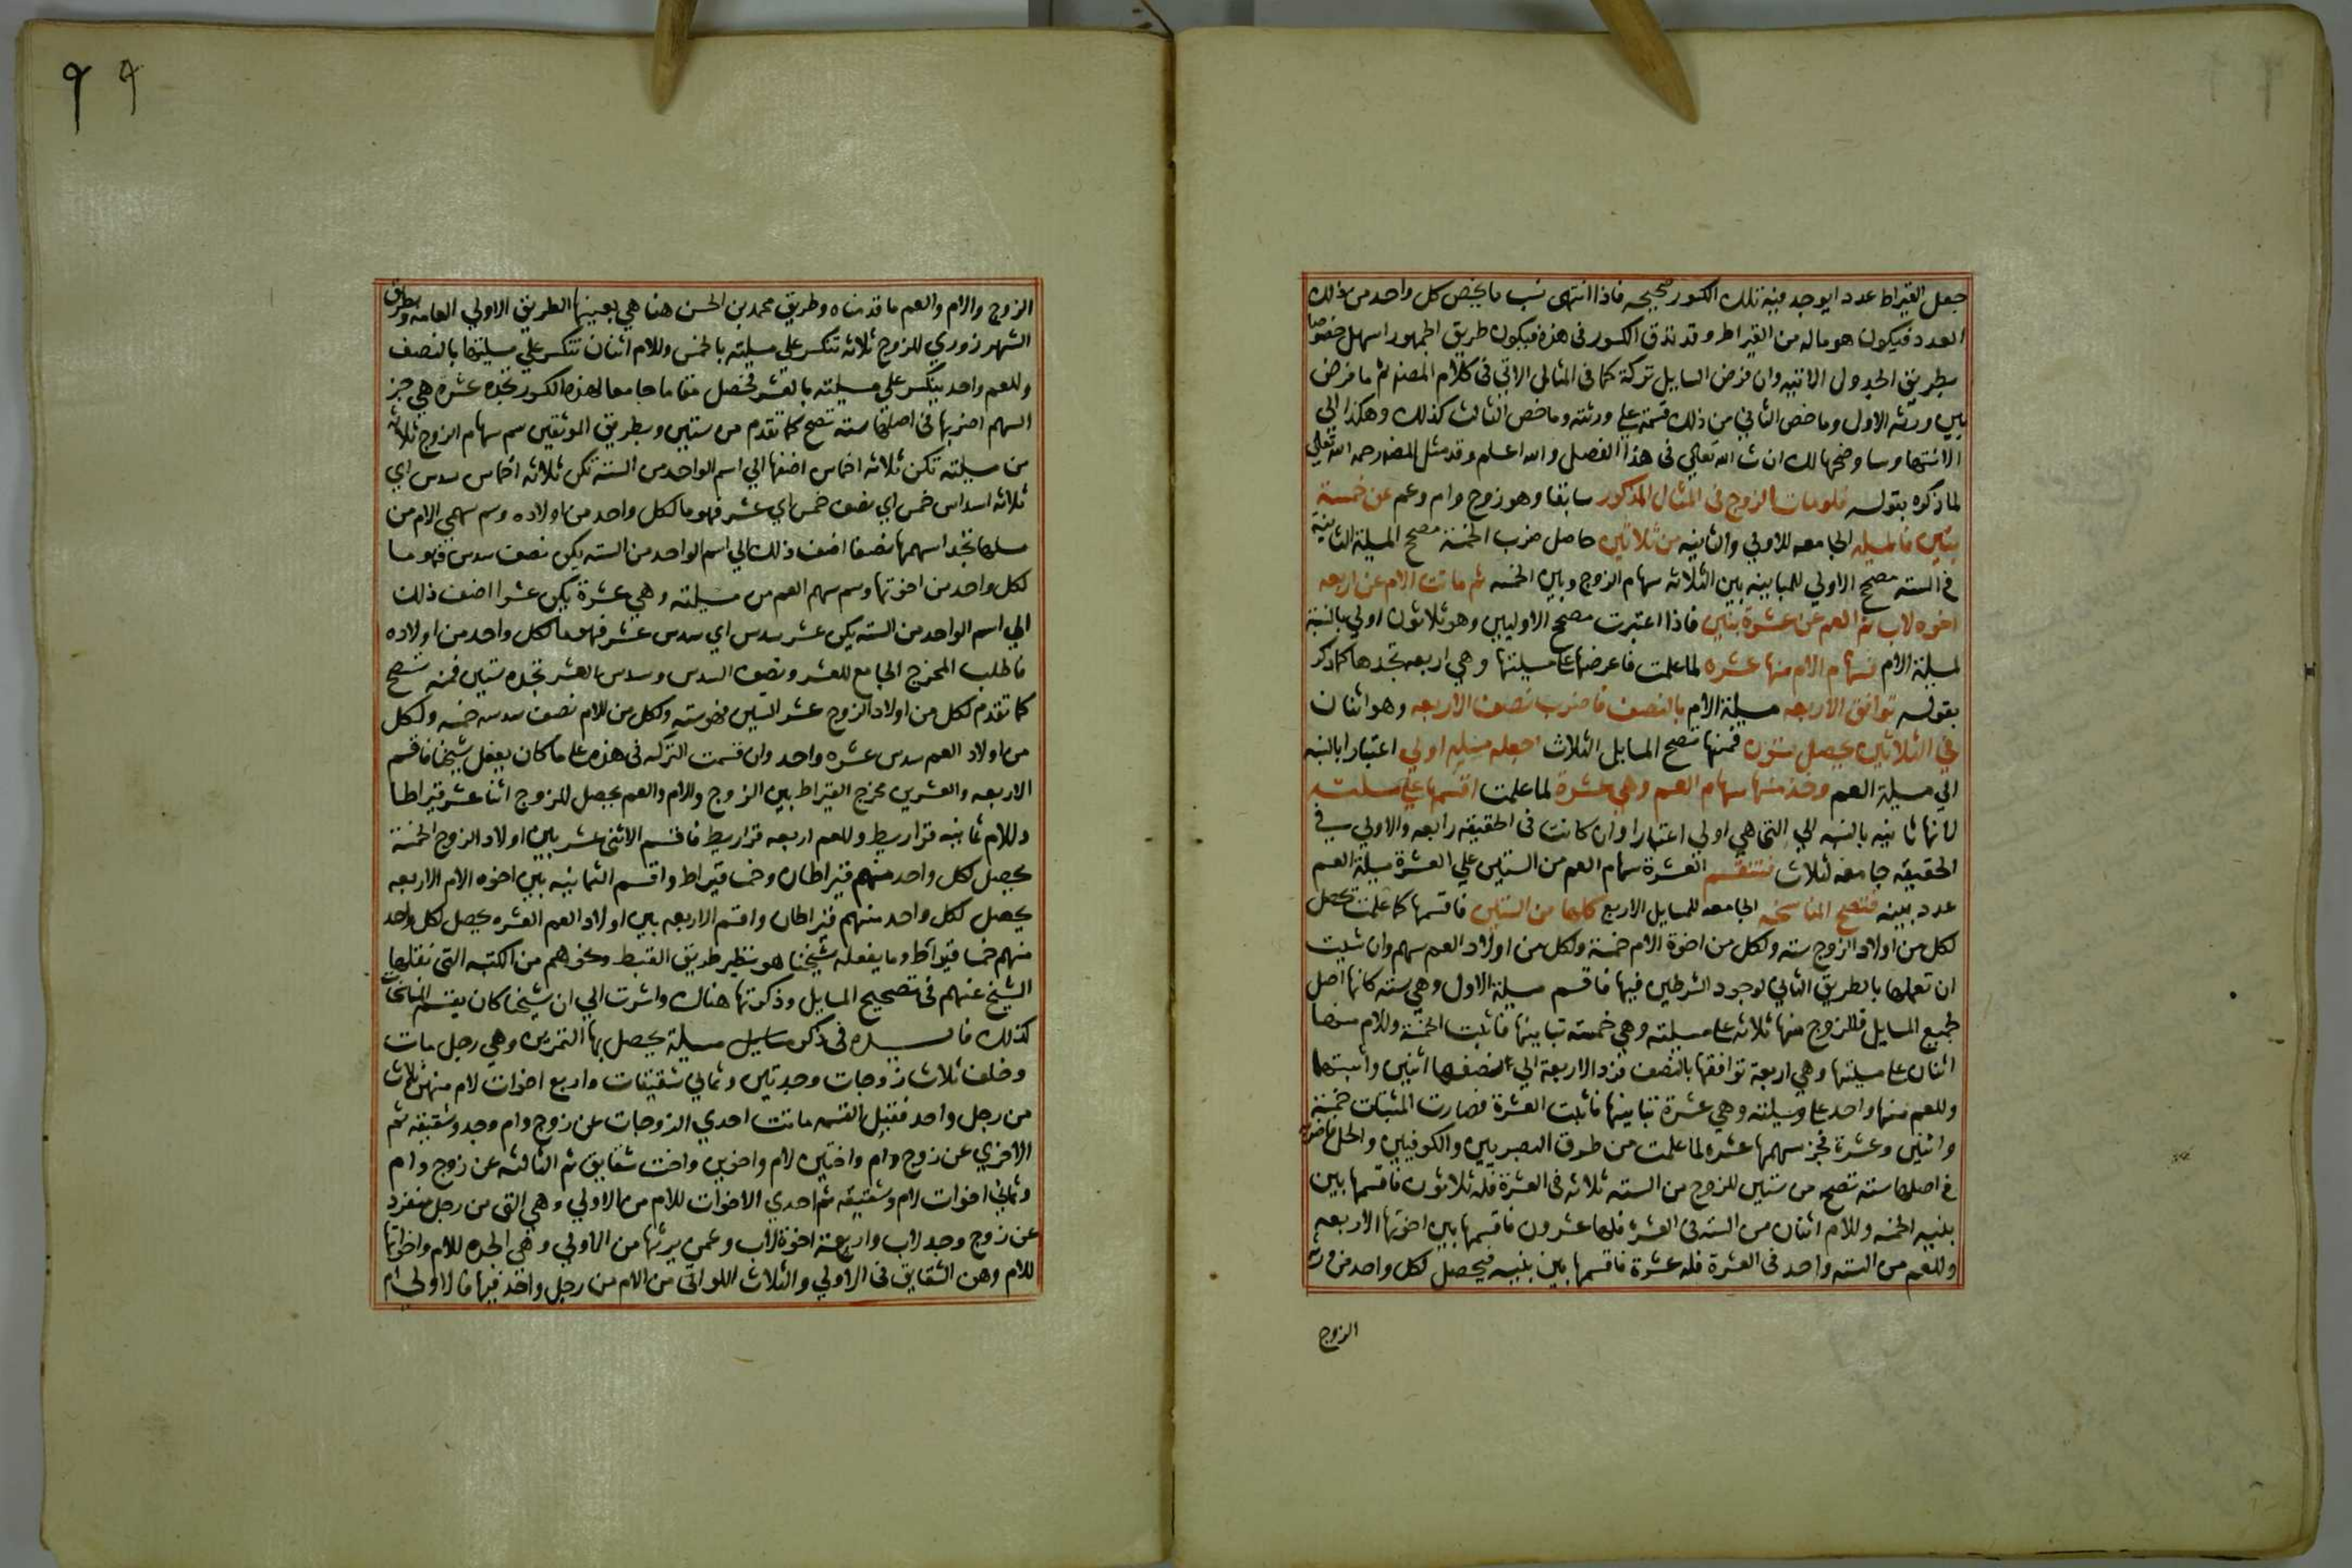 جعل القيراط عددا يوجد فيه تلك الكسور صحيحه فاذا انتهى نسب ما يخص كل واحد من ذلك
العدد فيكون هو ماله من القيراط وقد تدق الكسور فى هذه فيكون طريق الجمهور اسهل خصوصا
بطريق الجدول الاتيه وان فرض السايل تركة كما فى المثال الاتي فى كلام المصنف ما فرض
بين ورثه الاول وما خص الثاني من ذلك قسمته على ورثته وما خص الثالث كذلك وهكذا الي
الانتها وساوضحها لك ان شا الله تعالي فى هذا الفصل والله اعلم وقد مثل المصنف رحمه الله تعالي
لما ذكره بقوله فلو مات الزوج فى المثال المذكور سابقا وهو زوج وام وعم عن خمسة
بنين فالمسيله الجامعه للاولي والثانيه من ثلاثين حاصل ضرب الخمسة مصحح المسيلة الثانية
فى السته مصحح الاولي للمباينه بين الثلاثه سهام الزوج وبين الخمسه ثم ماتت الام عن اربعه
اخوه لاب ثم العم عن عشرة بنين فاذا اعتبرت مصحح الاوليين وهو ثلاثون اولي بالنسبة
لمسيلة الام فسهام الام منها عشره لما علمت فاعرضها على مسيلتها وهي اربعه تجدها كما ذكر
بقوله توافق الاربعه مسيلة الام بالنصف فاضرب نصف الاربعه وهو اثنان
في الثلاثين يحصل ستون فمنها تصح المسايل الثلاث اجعله مسيلة اولي اعتبارا بالنسبه
الي مسيلة العم وخذ منها سهام العم وهي عشرة لما علمت اقسمها علي مسيلته
لانها ثانيه بالنسبه الي التى هي اولي اعتبارا وان كانت فى الحقيقه رابعه والاولي في
الحقيقه جامعه لثلاث فتنقسم العشرة سهام العم من الستين علي العشرة مسيلة العم
عدد بنيه فتصح المناسخه الجامعه للمسايل الاربع كلها من الستين فاقسمها كما علمت يحصل
لكل من اولاد الزوج سته ولكل من اخوة الام خمسة ولكل من اولاد العم سهم وان شيت
ان تعملها بالطريق الثاني لوجود الشرطين فيها فاقسم مسيلة الاول وهي سته كانها اصل
لجميع المسايل فللزوج منها ثلاثه على مسيلته وهي خمسه تباينها فاثبت الخمسة وللام منها
اثنان على مسيلتها وهي اربعة توافقها بالنصف فرد الاربعة الي نصفها اثنين واثبتهما
وللعم منها واحد على مسيلته وهي عشرة تباينها فاثبت العشرة فصارت المثبتات خمسة
واثنين وعشرة فجز سهمها عشره لما علمت من طرق البصريين والكوفيين والحل فاضربه
فى اصلها سته تصح من ستين للزوج من السته ثلاثه فى العشرة فله ثلاثون فاقسمها بين
بنيه الخمسه وللام اثنان من السته فى العشرة فلها عشرون فاقسمها بين اخوتها الاربعه
وللعم من السته واحد فى العشرة فله عشرة فاقسمها بين بنيه فيحصل لكل واحد من ورثه
الزوج
٩ ٩
الزوج والام والعم ما قدمناه وطريق محمد بن الحسن هنا هي بعينها الطريق الاولي العامه وبطريق
الشهرزوري للزوج ثلاثه تنكسر علي مسيلته بالخمس وللام اثنان تنكسر علي مسيلتها بالنصف
وللعم واحد ينكسر على مسيلته بالعشر فحصل مقاما جامعا لهذه الكسور تجده عشرة هي جز
السهم اضربها فى اصلها سته تصح كما تقدم من ستين وبطريق الموثقين سم سهام الزوج ثلاثه
من مسيلته تكن ثلاثه اخماس اضفها الي اسم الواحد من السته تكن ثلاثه اخماس سدس اي
ثلاثه اسداس خمس اي نصف خمس اي عشر فهو ما لكل واحد من اولاده وسم سهمي الام من
مسلها تجد اسهمها نصفا اضف ذلك الي اسم الواحد من السته يكن نصف سدس فهو ما
لكل واحد من اخوتها وسم سهم العم من مسيلته وهي عشرة يكن عشرا اضف ذلك
الي اسم الواحد من السته يكن عشر سدس اي سدس عشر فهو ما لكل واحد من اولاده
فاطلب المخرج الجامع للعشر ونصف السدس وسدس العشر تجده ستين فمنه تصح
كما تقدم لكل من اولاد الزوج عشر الستين فهو سته ولكل من للام نصف سدسه خمسه ولكل
من اولاد العم سدس عشره واحد وان قسمت التركه فى هذه على ما كان يفعل شيخنا فاقسم
الاربعه والعشرين مخرج القيراط بين الزوج والام والعم يحصل للزوج اثنا عشر قيراطا
وللام ثمانيه قراريط وللعم اربعه قراريط فاقسم الاثنى عشر بين اولاد الزوج الخمسة
يحصل لكل واحد منهم قيراطان وخمسا قيراط واقسم الثمانيه بين اخوه الام الاربعه
يحصل لكل واحد منهم قيراطان واقسم الاربعه بين اولاد العم العشره يحصل لكل واحد
منهم خمسا قيراط وما يفعله شيخنا هو نظير طريق القبط ونحوهم من الكتبه التى نقلها
الشيخ عنهم فى تصحيح المسايل وذكرتها هناك واشرت الي ان شيخنا كان يقسم المناسخات
كذلك فايده فى ذكر مسايل مسيلة يحصل بها التمرين وهي رجل مات
وخلف ثلاث زوجات وجدتين وثماني شقيقات واربع اخوات لام منهن ثلاث
من رجل واحد فقبل القسمه ماتت احدي الزوجات عن زوج وام وجد وشقيقه ثم
الاخري عن زوج وام واختين لام واخوين واخت شقايق ثم الثالثه عن زوج وام
وثماني اخوات لام وشقيقه ثم احدي الاخوات للام من الاولي وهي التى من رجل منفرد
عن زوج وجد لاب واربعة اخوة لاب وعمن يرثها من الاولي وهي الجده للام واخواتها
للام وهن الشقايق فى الاولي والثلاث اللواتى من الام من رجل واحد فيها فالاولي ام